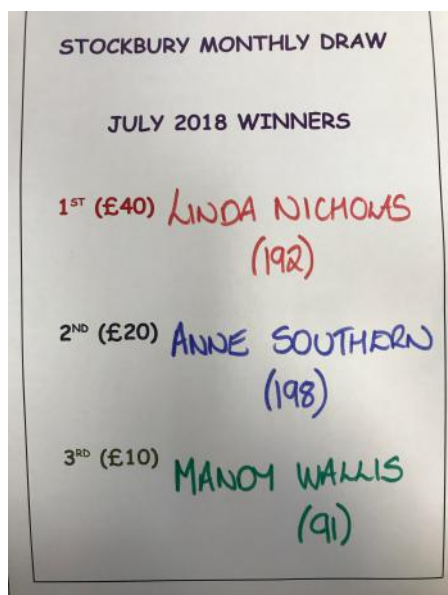 STOCKBURY MONTHLY DRAW
JULY 2018 WINNERS
1ST (£40) LINDA NICHOLAS
(192)
2ND (£20) ANNE SOUTHERN
(198)
3RD (£10) MANDY WALLIS
(91)